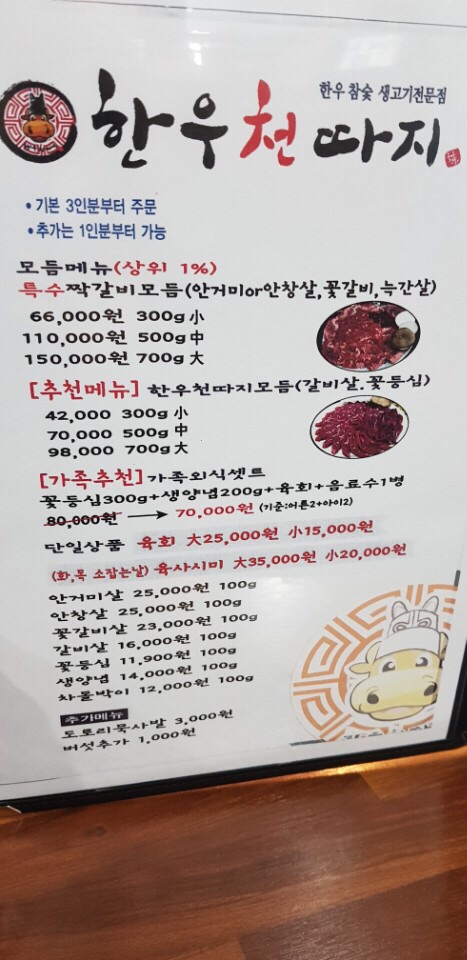 한우 참숯 생고기전문점
한우천따지
• 기본 3인분부터 주문
• 추가는 1인분부터 가능
모듬메뉴(상위 1%)
특수짝갈비모듬(안거미or안창살,꽃갈비,늑간살)
66,000원 300g 小
110,000원 500g 中
150,000원 700g 大
[추천메뉴] 한우천따지모듬(갈비살,꽃등심)
42,000 300g 小
70,000 500g 中
98,000 700g 大
[가족추천] 가족외식셋트
꽃등심300g+생양념200g+육회+음료수1병
80,000원 → 70,000원 (기준:어른2+아이2)
단일상품 육회 大25,000원 小15,000원
(화,목 소잡는날) 육사시미 大35,000원 小20,000원
안거미살 25,000원 100g
안창살 25,000원 100g
꽃갈비살 23,000원 100g
갈비살 16,000원 100g
꽃등심 11,900원 100g
생양념 14,000원 100g
차돌박이 12,000원 100g
추가메뉴
도토리묵사발 3,000원
버섯추가 1,000원